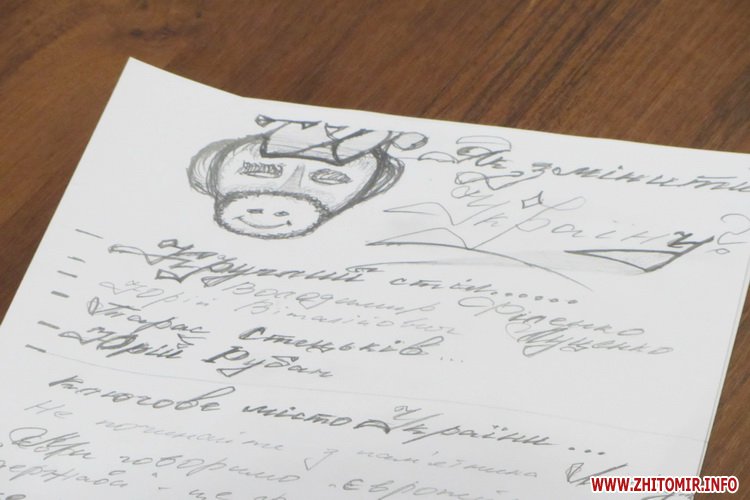 Як змінити
Україну?
Круглий стіл......
Володимир Філенко
Юрій Віталійович Луценко
Тарас Стецьків...
Юрій Рубан
Ключове місто України...
Не починайте з пам'ятника
Ми говоримо
ще
WWW.ZHITOMIR.INFO